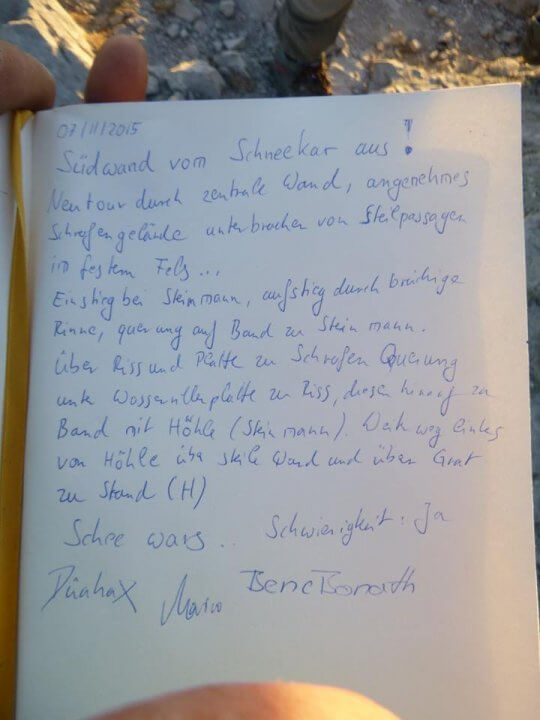 07/11/2015
Südwand vom Schneekar aus!
Neutour durch zentrale Wand, angenehmes
Schrofengelände unterbrochen von Steilpassagen
in festem Fels...
Einstieg bei Steinmann, aufstieg durch brüchige
Rinne, querung auf Band zu Steinmann.
Über Riss und Platte zu Schrofen Querung
unter Wasserrillenplatte zu Riss, diesen hinauf zu
Band mit Höhle (Steinmann). Weiterweg links
von Höhle über steile Wand und über Grat
zu Stand (H)
Schee wars.. Schwierigkeit: Ja
Mario